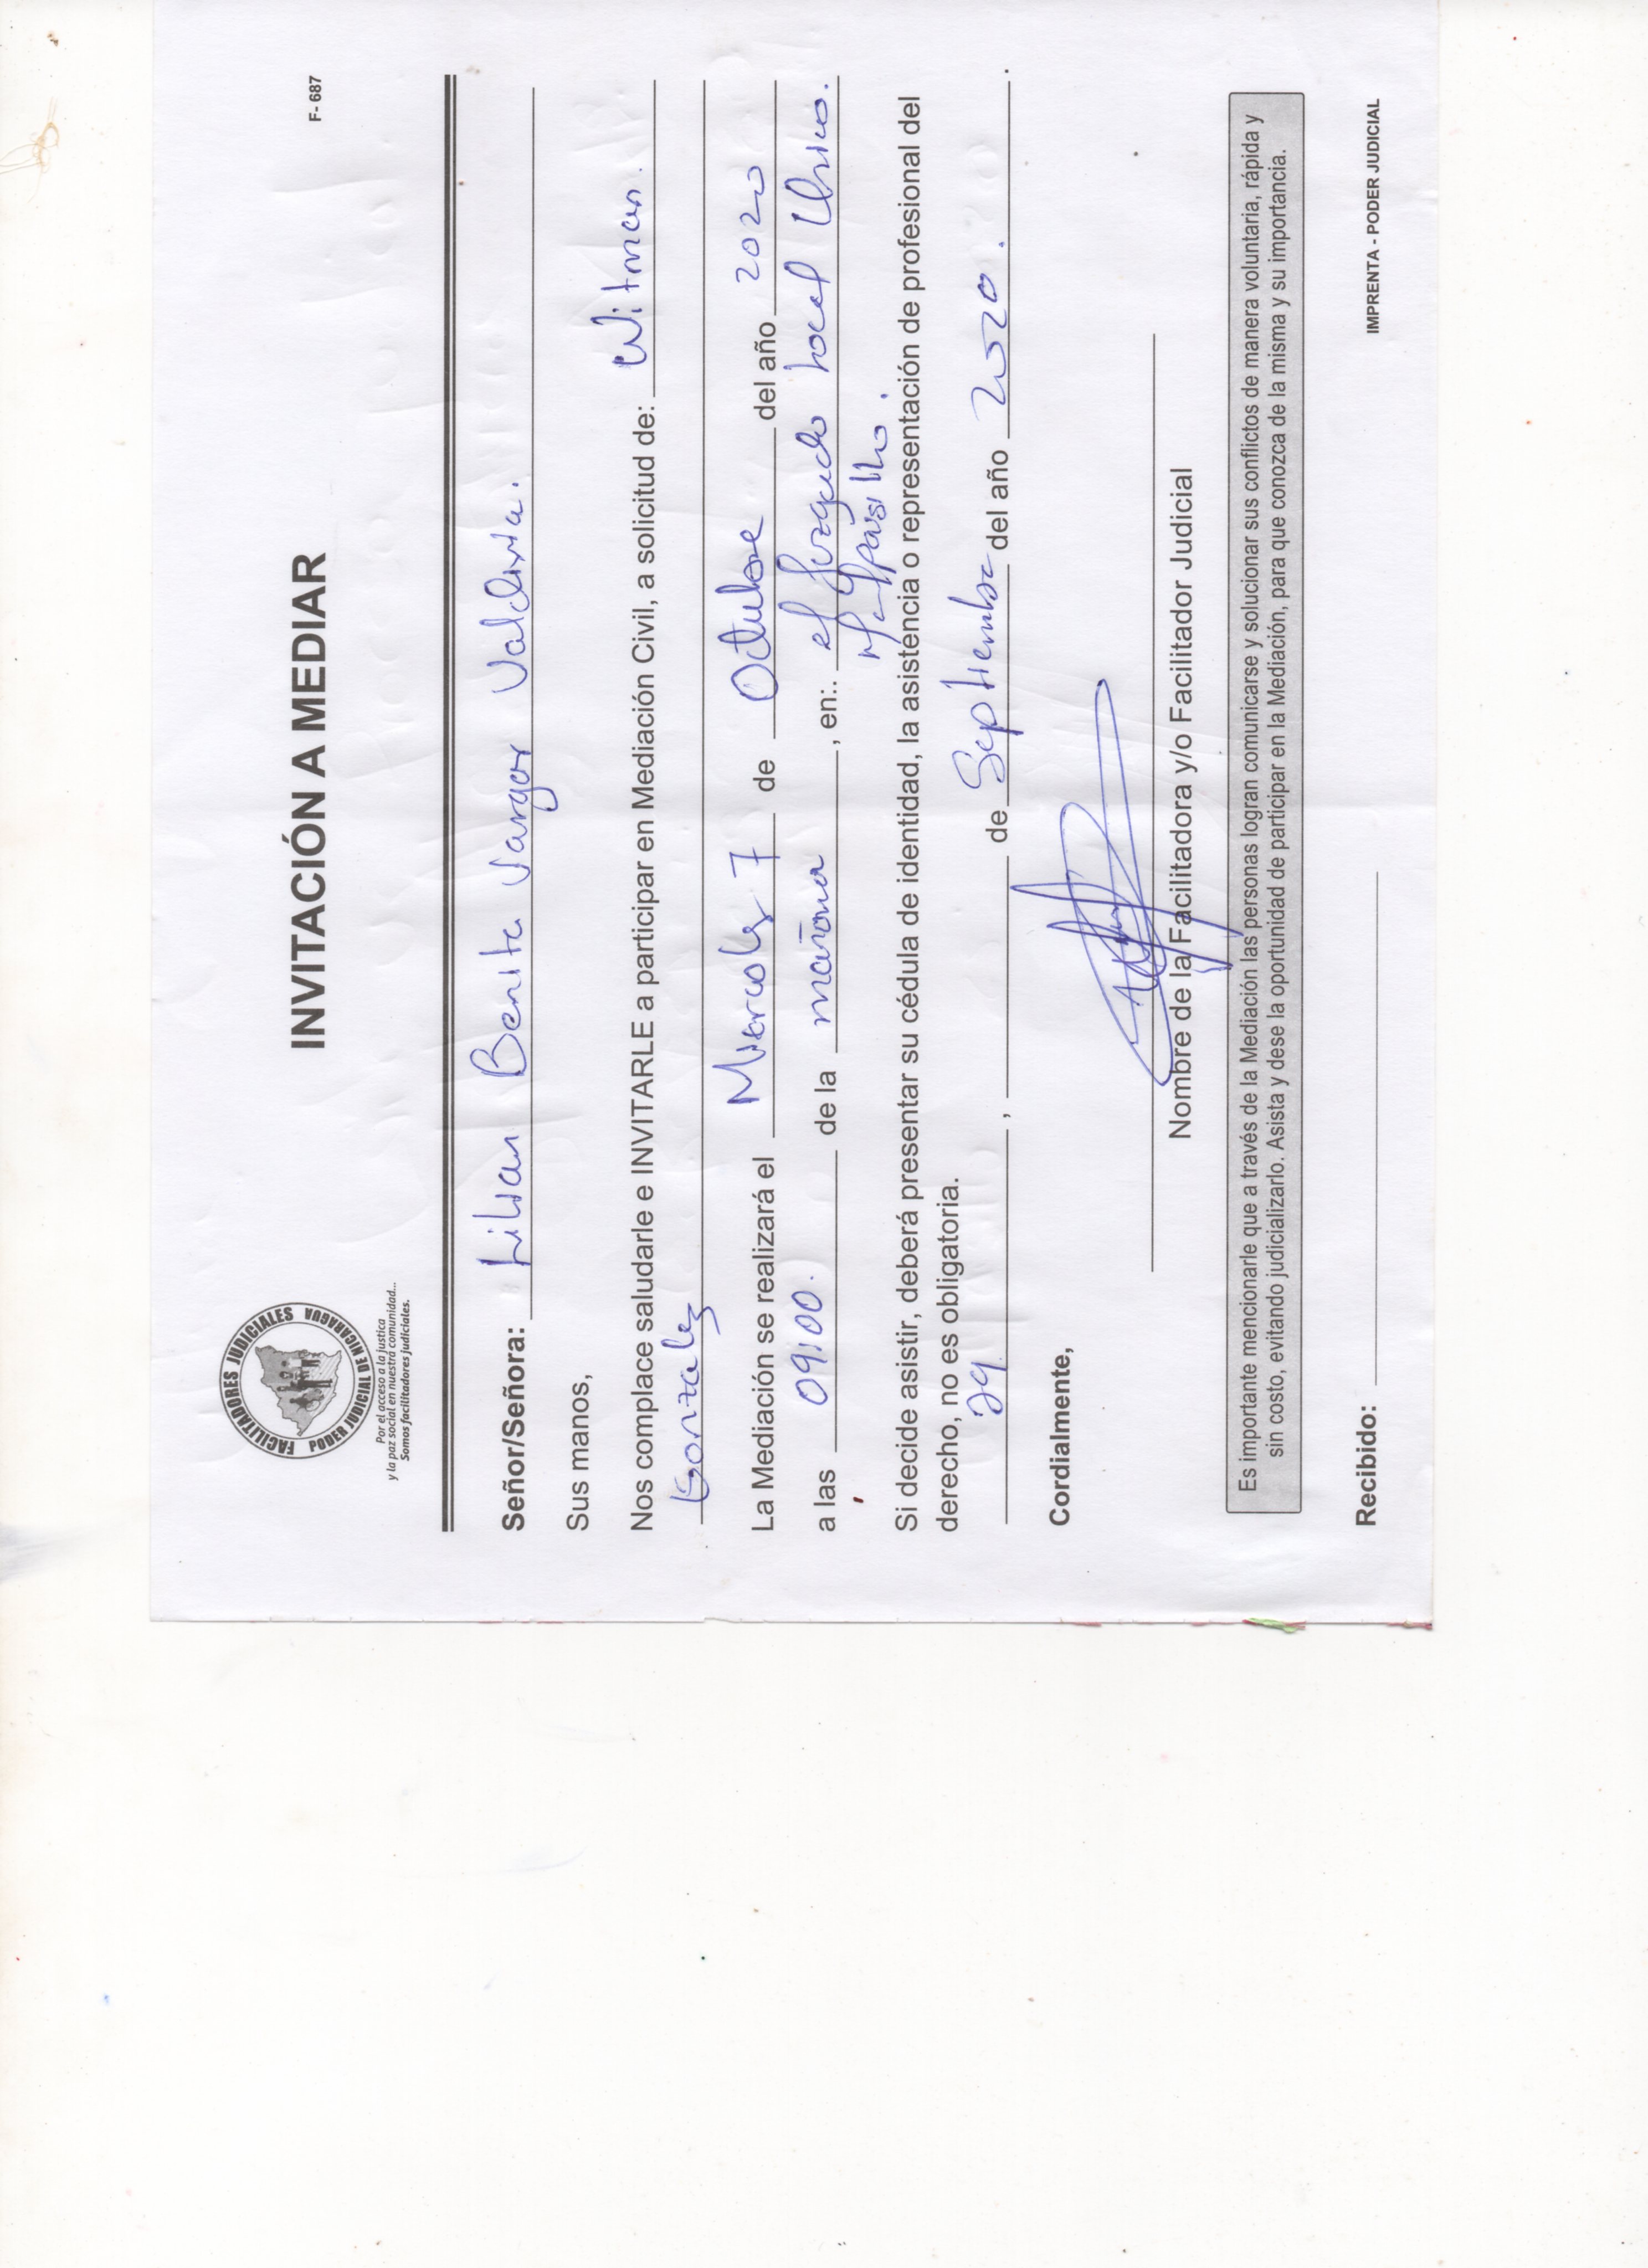 FACILITADORES JUDICIALES
PODER JUDICIAL DE NICARAGUA
Por el acceso a la justica
y la paz social en nuestra comunidad...
Somos facilitadores judiciales.
F- 687
INVITACIÓN A MEDIAR
Señor/Señora: Lilian Benita Vargas Valdivia.
Sus manos,
Nos complace saludarle e INVITARLE a participar en Mediación Civil, a solicitud de: Witman.
Gonzalez
La Mediación se realizará el Miercoles 7 de Octubre del año 2020
a las 09:00. de la mañana, en:. el Juzgado Local Unico.
Si decide asistir, deberá presentar su cédula de identidad, la asistencia o representación de profesional del
derecho, no es obligatoria.
29 , de Septiembre del año 2020.
Cordialmente,
Nombre de la Facilitadora y/o Facilitador Judicial
Es importante mencionarle que a través de la Mediación las personas logran comunicarse y solucionar sus conflictos de manera voluntaria, rápida y
sin costo, evitando judicializarlo. Asista y dese la oportunidad de participar en la Mediación, para que conozca de la misma y su importancia.
Recibido:
IMPRENTA - PODER JUDICIAL